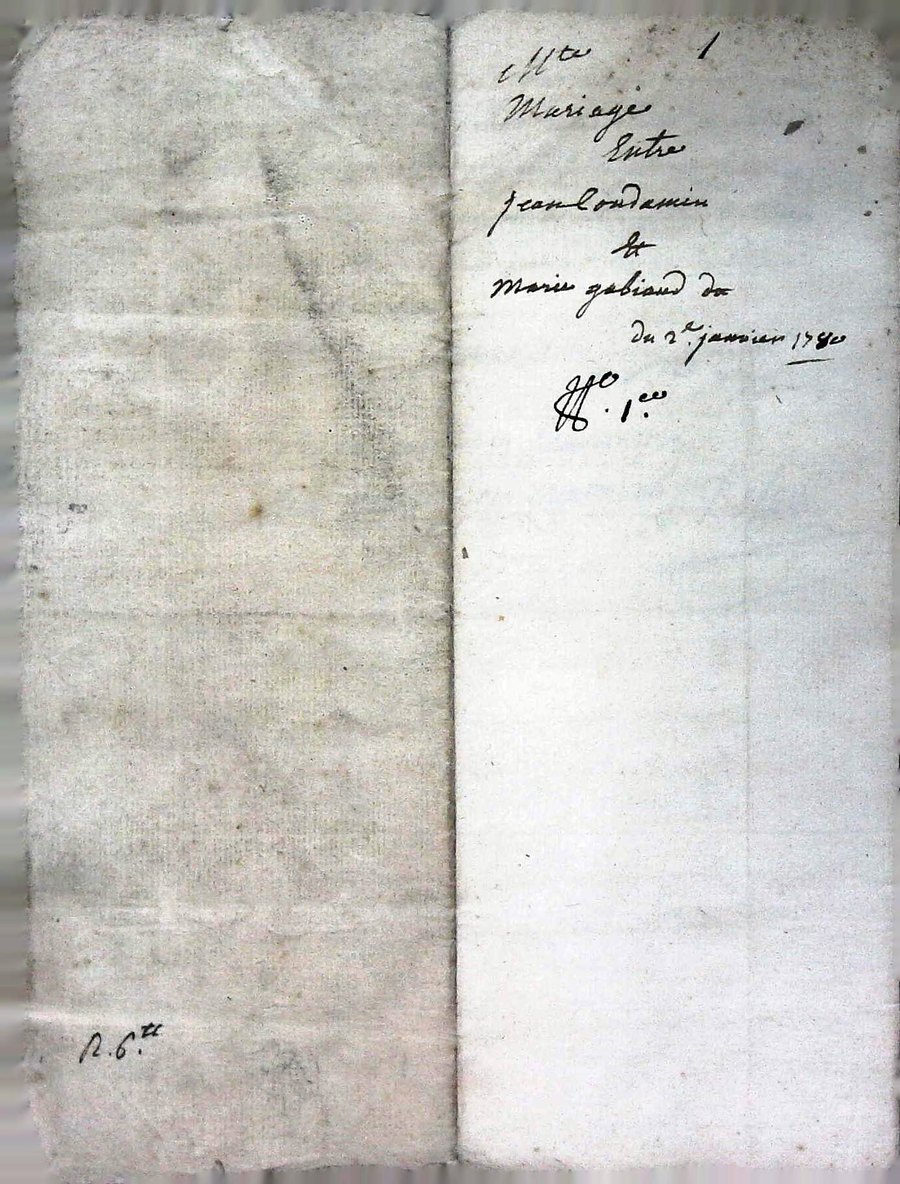 1
Mariage
Entre
jean Condamin
Et
Marie gabiaud du
du 2e. janvier 1780
R. 6.tt